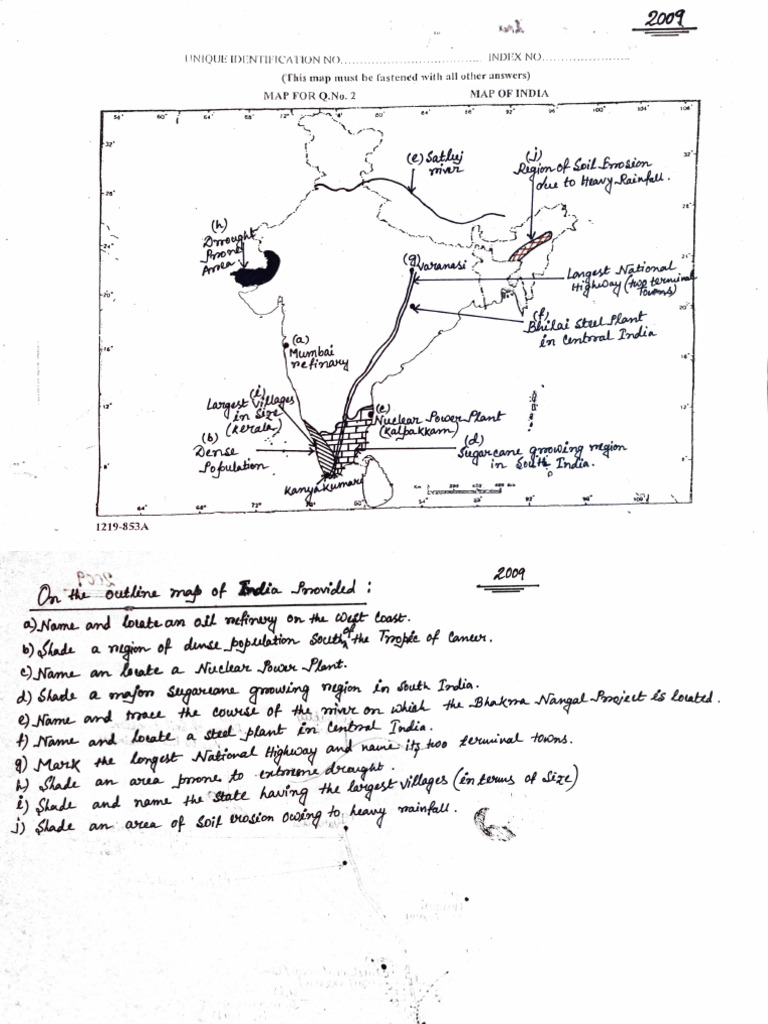 2009
UNIQUE IDENTIFICATION NO. INDEX NO.
(This map must be fastened with all other answers)
MAP FOR Q.No. 2 MAP OF INDIA
(e) Satluj river
(j)
Region of Soil Errosion
due to Heavy Rainfall.
(h)
Drought
Prone
Area
(g) Varanasi
Longest National
Highway (two terminal
towns)
(f)
Bhilai Steel Plant
in Central India
(a)
Mumbai
refinary
(i)
Largest Villages
in Size
(Kerala)
(e)
Nuclear Power Plant
(Kalpakkam)
(b)
Dense
Population
(d)
Sugarcane growing region
in South India.
Kanyakumari
1219-853A
2009
On the outline map of India Provided :
a) Name and locate an oil refinery on the west coast.
b) Shade a region of dense population south of the Tropic of Cancer.
c) Name an locate a Nuclear Power Plant.
d) Shade a major sugarcane growing region in south India.
e) Name and trace the course of the river on which the Bhakra Nangal Project is located.
f) Name and locate a steel plant in Central India.
g) Mark the longest National Highway and name its two terminal towns.
h) Shade an area prone to extreme drought.
i) Shade and name the state having the largest villages (in terms of Size)
j) Shade an area of soil erosion owing to heavy rainfall.